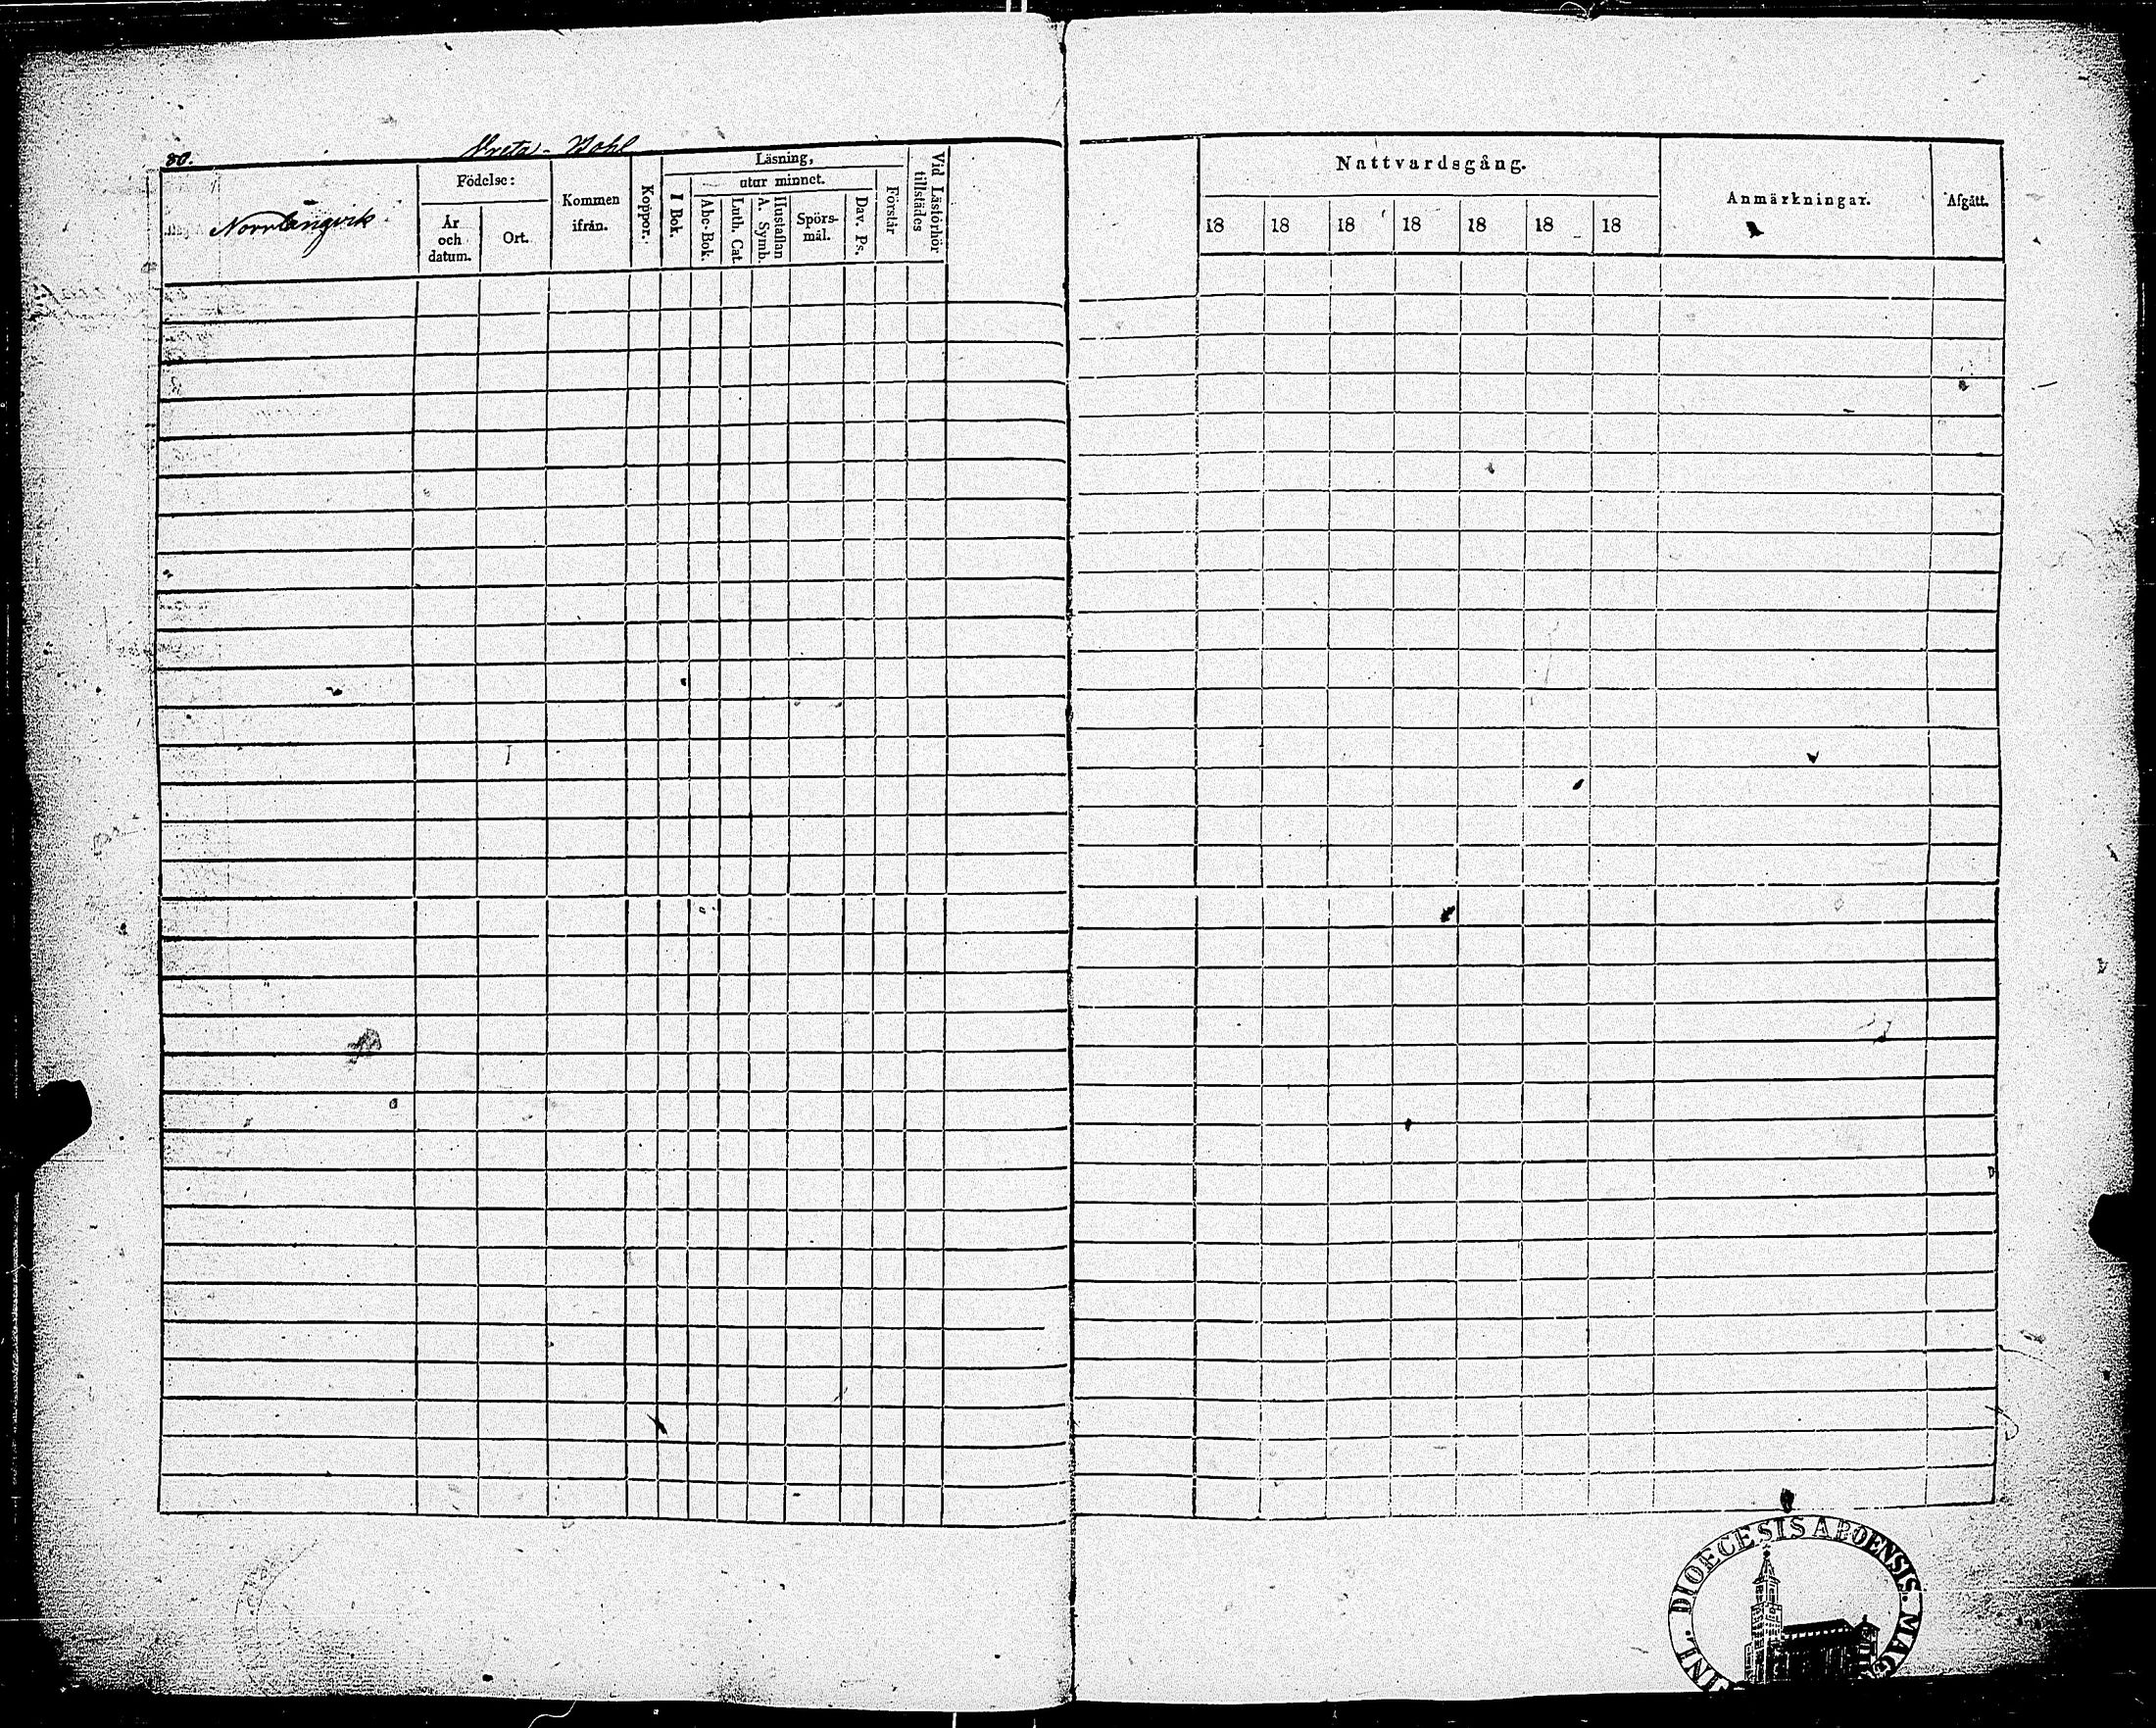 80.
Vreta - Bohl
Norrlångvik
Födelse:
År och datum.
Ort.
Kommen ifrån.
Koppor.
Läsning,
I Bok.
utur minnet.
Abc-Bok.
Luth. Cat.
Hustaflan A. Symb.
Spörs-mål.
Dav. Ps.
Förstår
Vid Läsförhör tillstädes
Nattvardsgång.
18 18 18 18 18 18 18
Anmärkningar.
Afgått.
DIOECESIS ABOENSIS. MAG